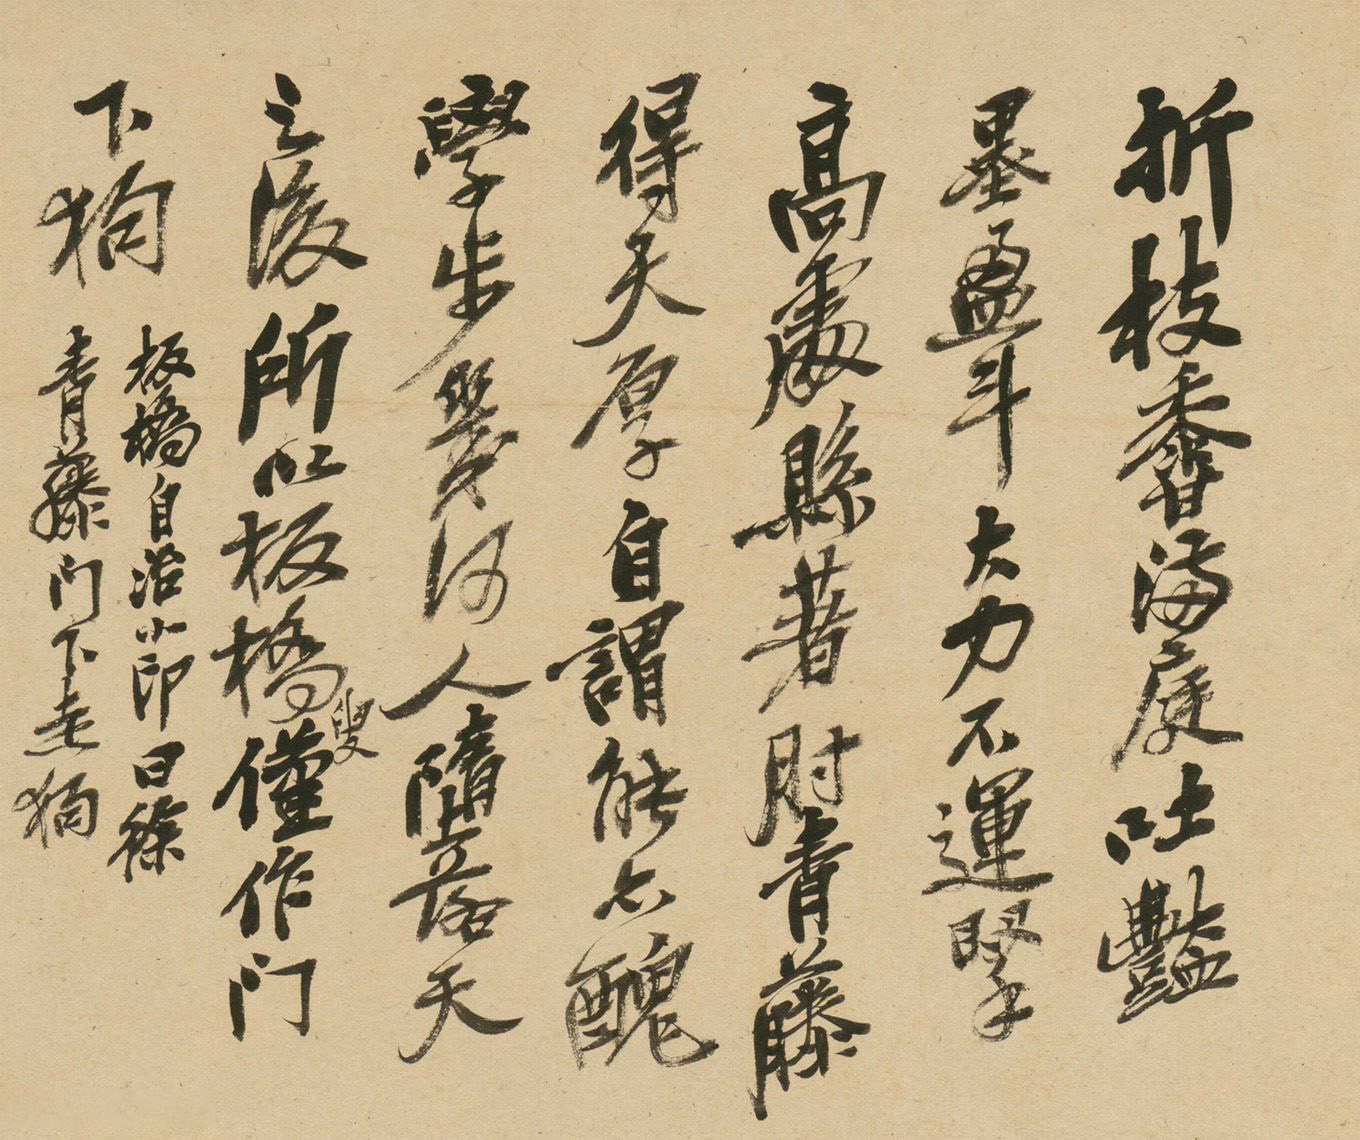 折枝香滿庭吐豔
墨盈斗大力不運掔
高處縣著肘青藤
得天厚自謂能亦醜
學步幾何人墮落天
之後所以板橋叟僅作門
下狗
板橋自治小印曰徐
青藤門下走狗